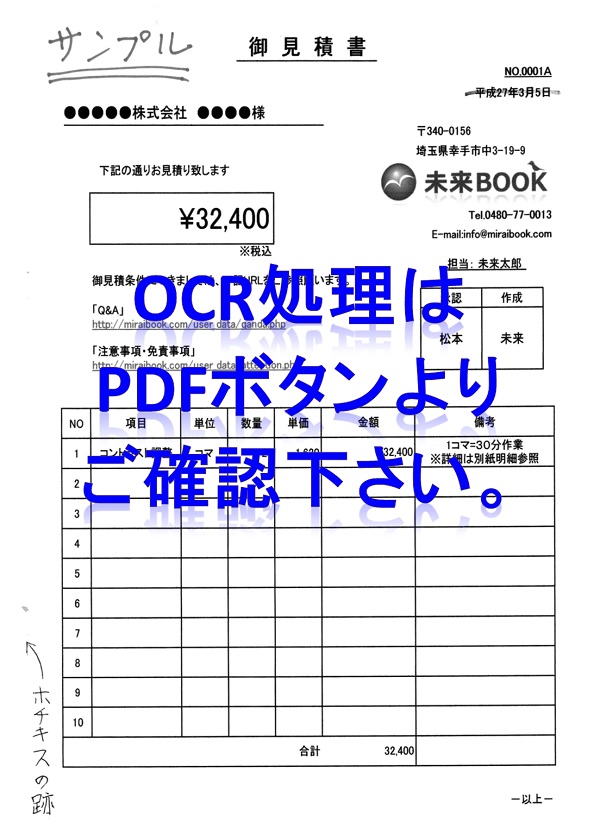 サンプル
御見積書
NO.0001A
平成27年3月5日
●●●●●株式会社 ●●●●様
〒340-0156
埼玉県幸手市中3-19-9
下記の通りお見積り致します
未来BOOK
¥32,400
Tel.0480-77-0013
※税込
E-mail:info@miraibook.com
担当: 未来太郎
御見積条件
OCR処理は
作成
「Q&A」
松本 未来
http://miraibook.com/user_data/qanda.php
「注意事項・免責事項」
PDFボタンより
NO 項目 単位 数量 単価 金額 備考
1 コマ 32,400 1コマ=30分作業
※詳細は別紙明細参照
ご確認下さい。
2
3
4
5
6
7
8
9
10
合計 32,400
←ホチキスの跡
－以上－